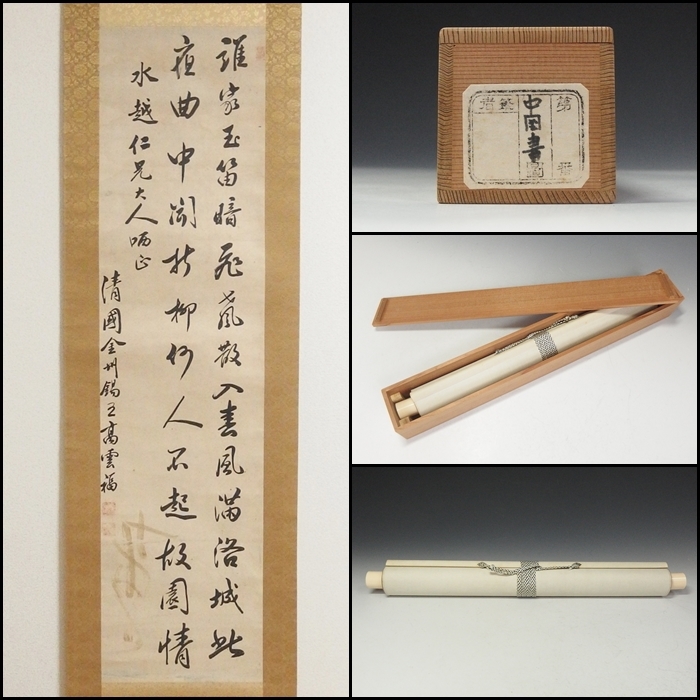 誰家玉笛暗飛聲散入春風滿洛城此
夜曲中聞折柳何人不起故園情
水越仁兄大人哂正
清國金州錫高雲福
第
中国書